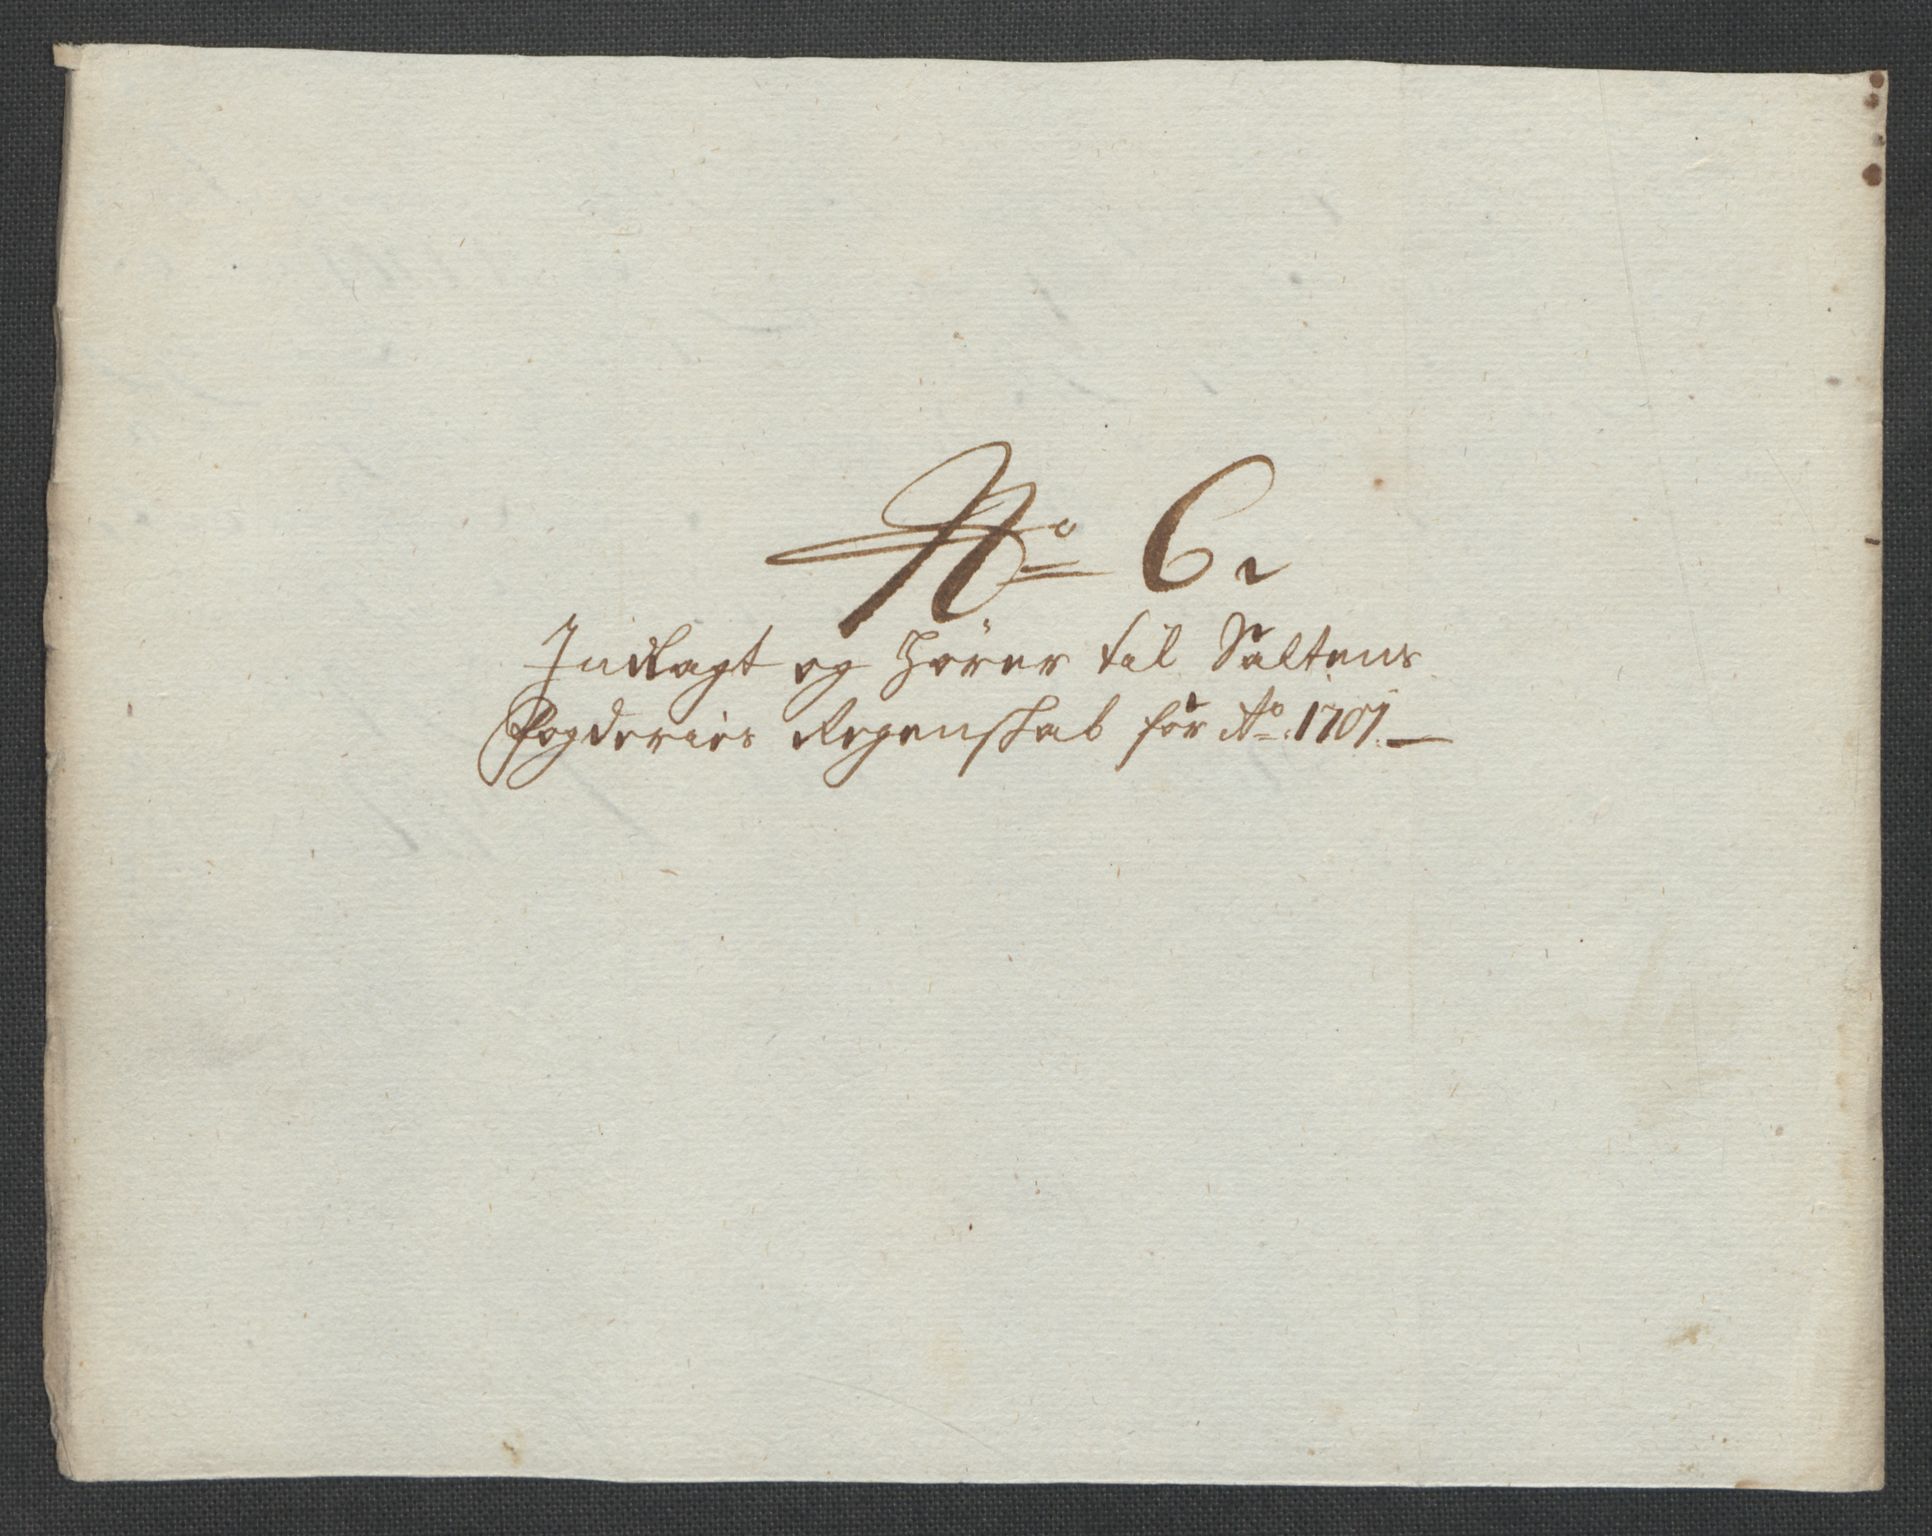 No 6.
Indlagt og hörer til Saltens
Fogderies Regenskab for Ao. 1707.